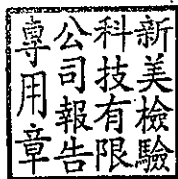 新美檢驗
科技有限
公司報告
專用章